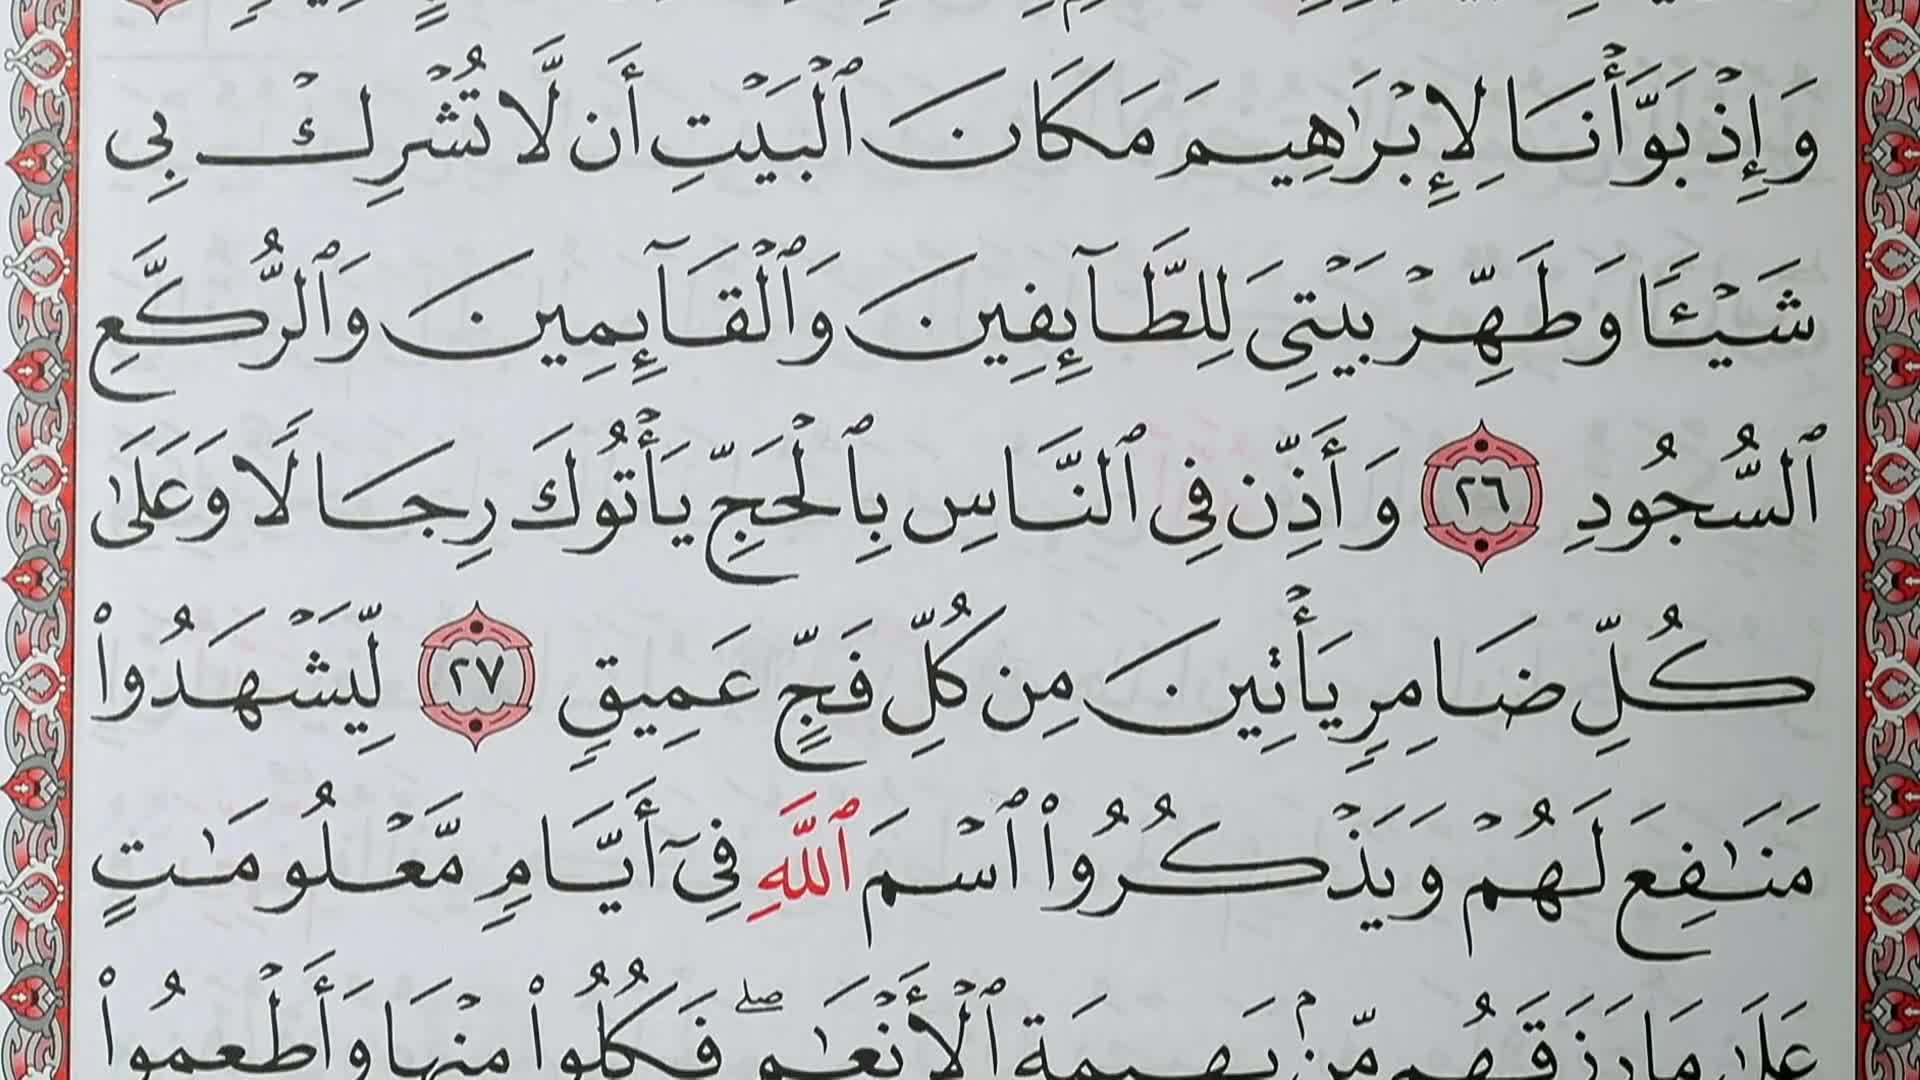 وَإِذۡ بَوَّأۡنَا لِإِبۡرَٰهِيمَ مَكَانَ ٱلۡبَيۡتِ أَن لَّا تُشۡرِكۡ بِي
شَيۡـٔٗا وَطَهِّرۡ بَيۡتِيَ لِلطَّآئِفِينَ وَٱلۡقَآئِمِينَ وَٱلرُّكَّعِ
ٱلسُّجُودِ ٢٦ وَأَذِّن فِي ٱلنَّاسِ بِٱلۡحَجِّ يَأۡتُوكَ رِجَالٗا وَعَلَىٰ
كُلِّ ضَامِرٖ يَأۡتِينَ مِن كُلِّ فَجٍّ عَمِيقٖ ٢٧ لِّيَشۡهَدُواْ
مَنَٰفِعَ لَهُمۡ وَيَذۡكُرُواْ ٱسۡمَ ٱللَّهِ فِيٓ أَيَّامٖ مَّعۡلُومَٰتٍ
عَلَىٰ مَا رَزَقَهُم مِّنۢ بَهِيمَةِ ٱلۡأَنۡعَٰمِۖ فَكُلُواْ مِنۡهَا وَأَطۡعِمُواْ